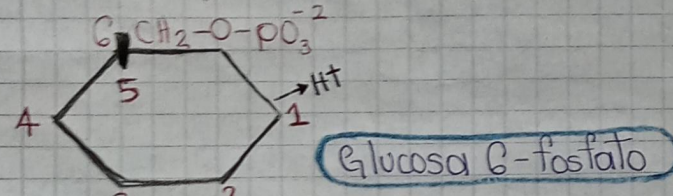 6 CH2-O-PO3-2
5
H+
4
1
Glucosa 6-fosfato